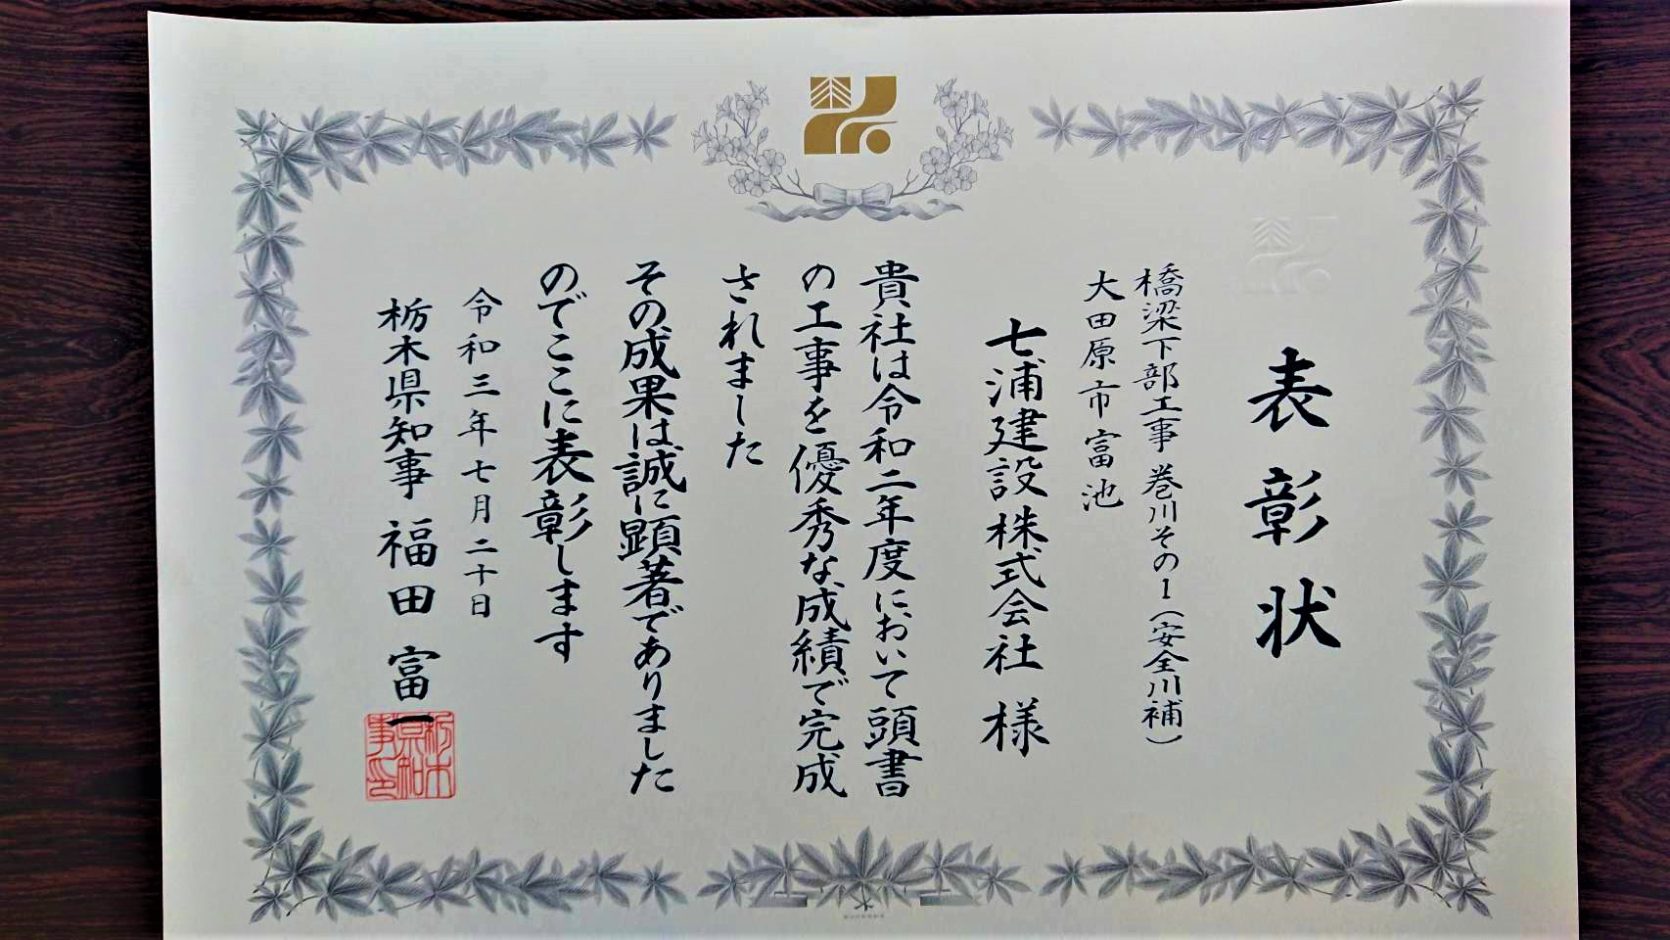 表彰状
橋梁下部工事 巻川その1(安全川補)
大田原市富池
七浦建設株式会社 様
貴社は令和二年度において頭書
の工事を優秀な成績で完成
されました
その成果は誠に顕著でありました
のでここに表彰します
令和三年七月二十日
栃木県知事 福田富一
栃木
県知
事印